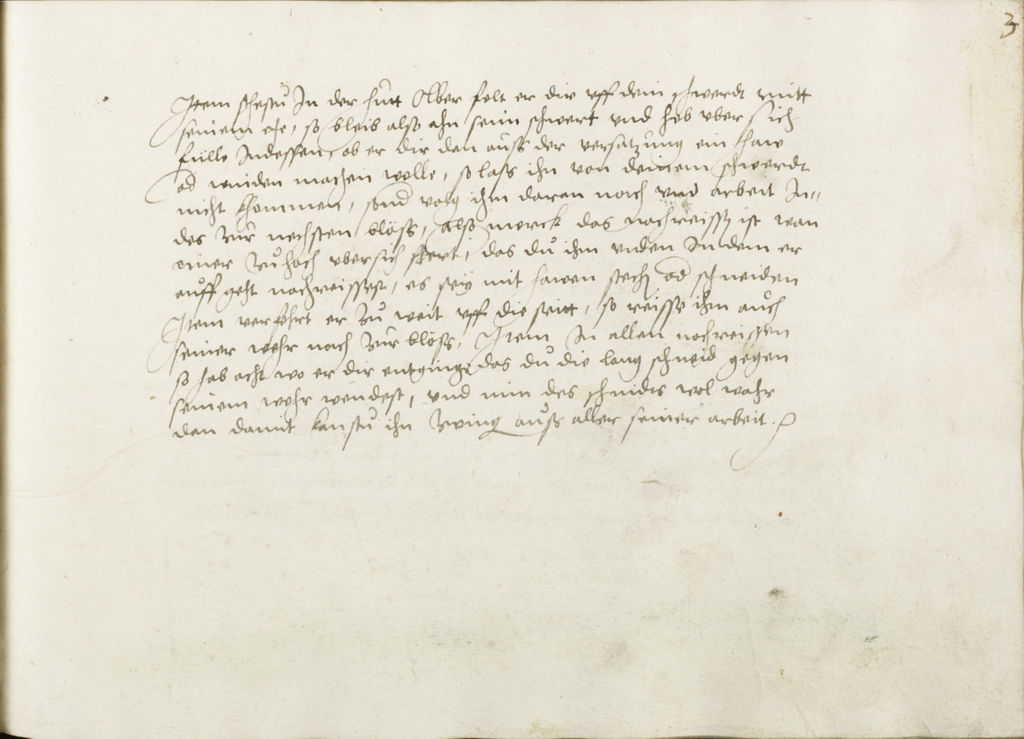 3
Item stehestu In der hutt Olber felt er dir uff dein schwerdt mitt
seinem ehe, so bleib also ahn seim schwert und heb uber sich
fülle Indessen, ob er dir dan auss der versatzung ein haw
od winden machen wolle, so lass ihn von deinem schwerdt
nicht khommen, sond volg ihm daran nach und arbeit In,,
des zur nechsten blöss, Also merck das nachreissen ist wan
einer zu hoch ubersich fhert, das du ihm unden In dem er
auff geht nachreissest, es sey mit hawen stechen od schneiden
Item verfehrt er zu weit uff die seitt, so reisse ihm auch
seiner wehr nach zur blöss, Item In allen nachreissen
so hab acht wo er dir entginge das du die lang schneid gegen
seinem wehr wendest, und nim des schnidts wol wahr
dan damit kanstu ihn zwing auss aller seiner arbeit.